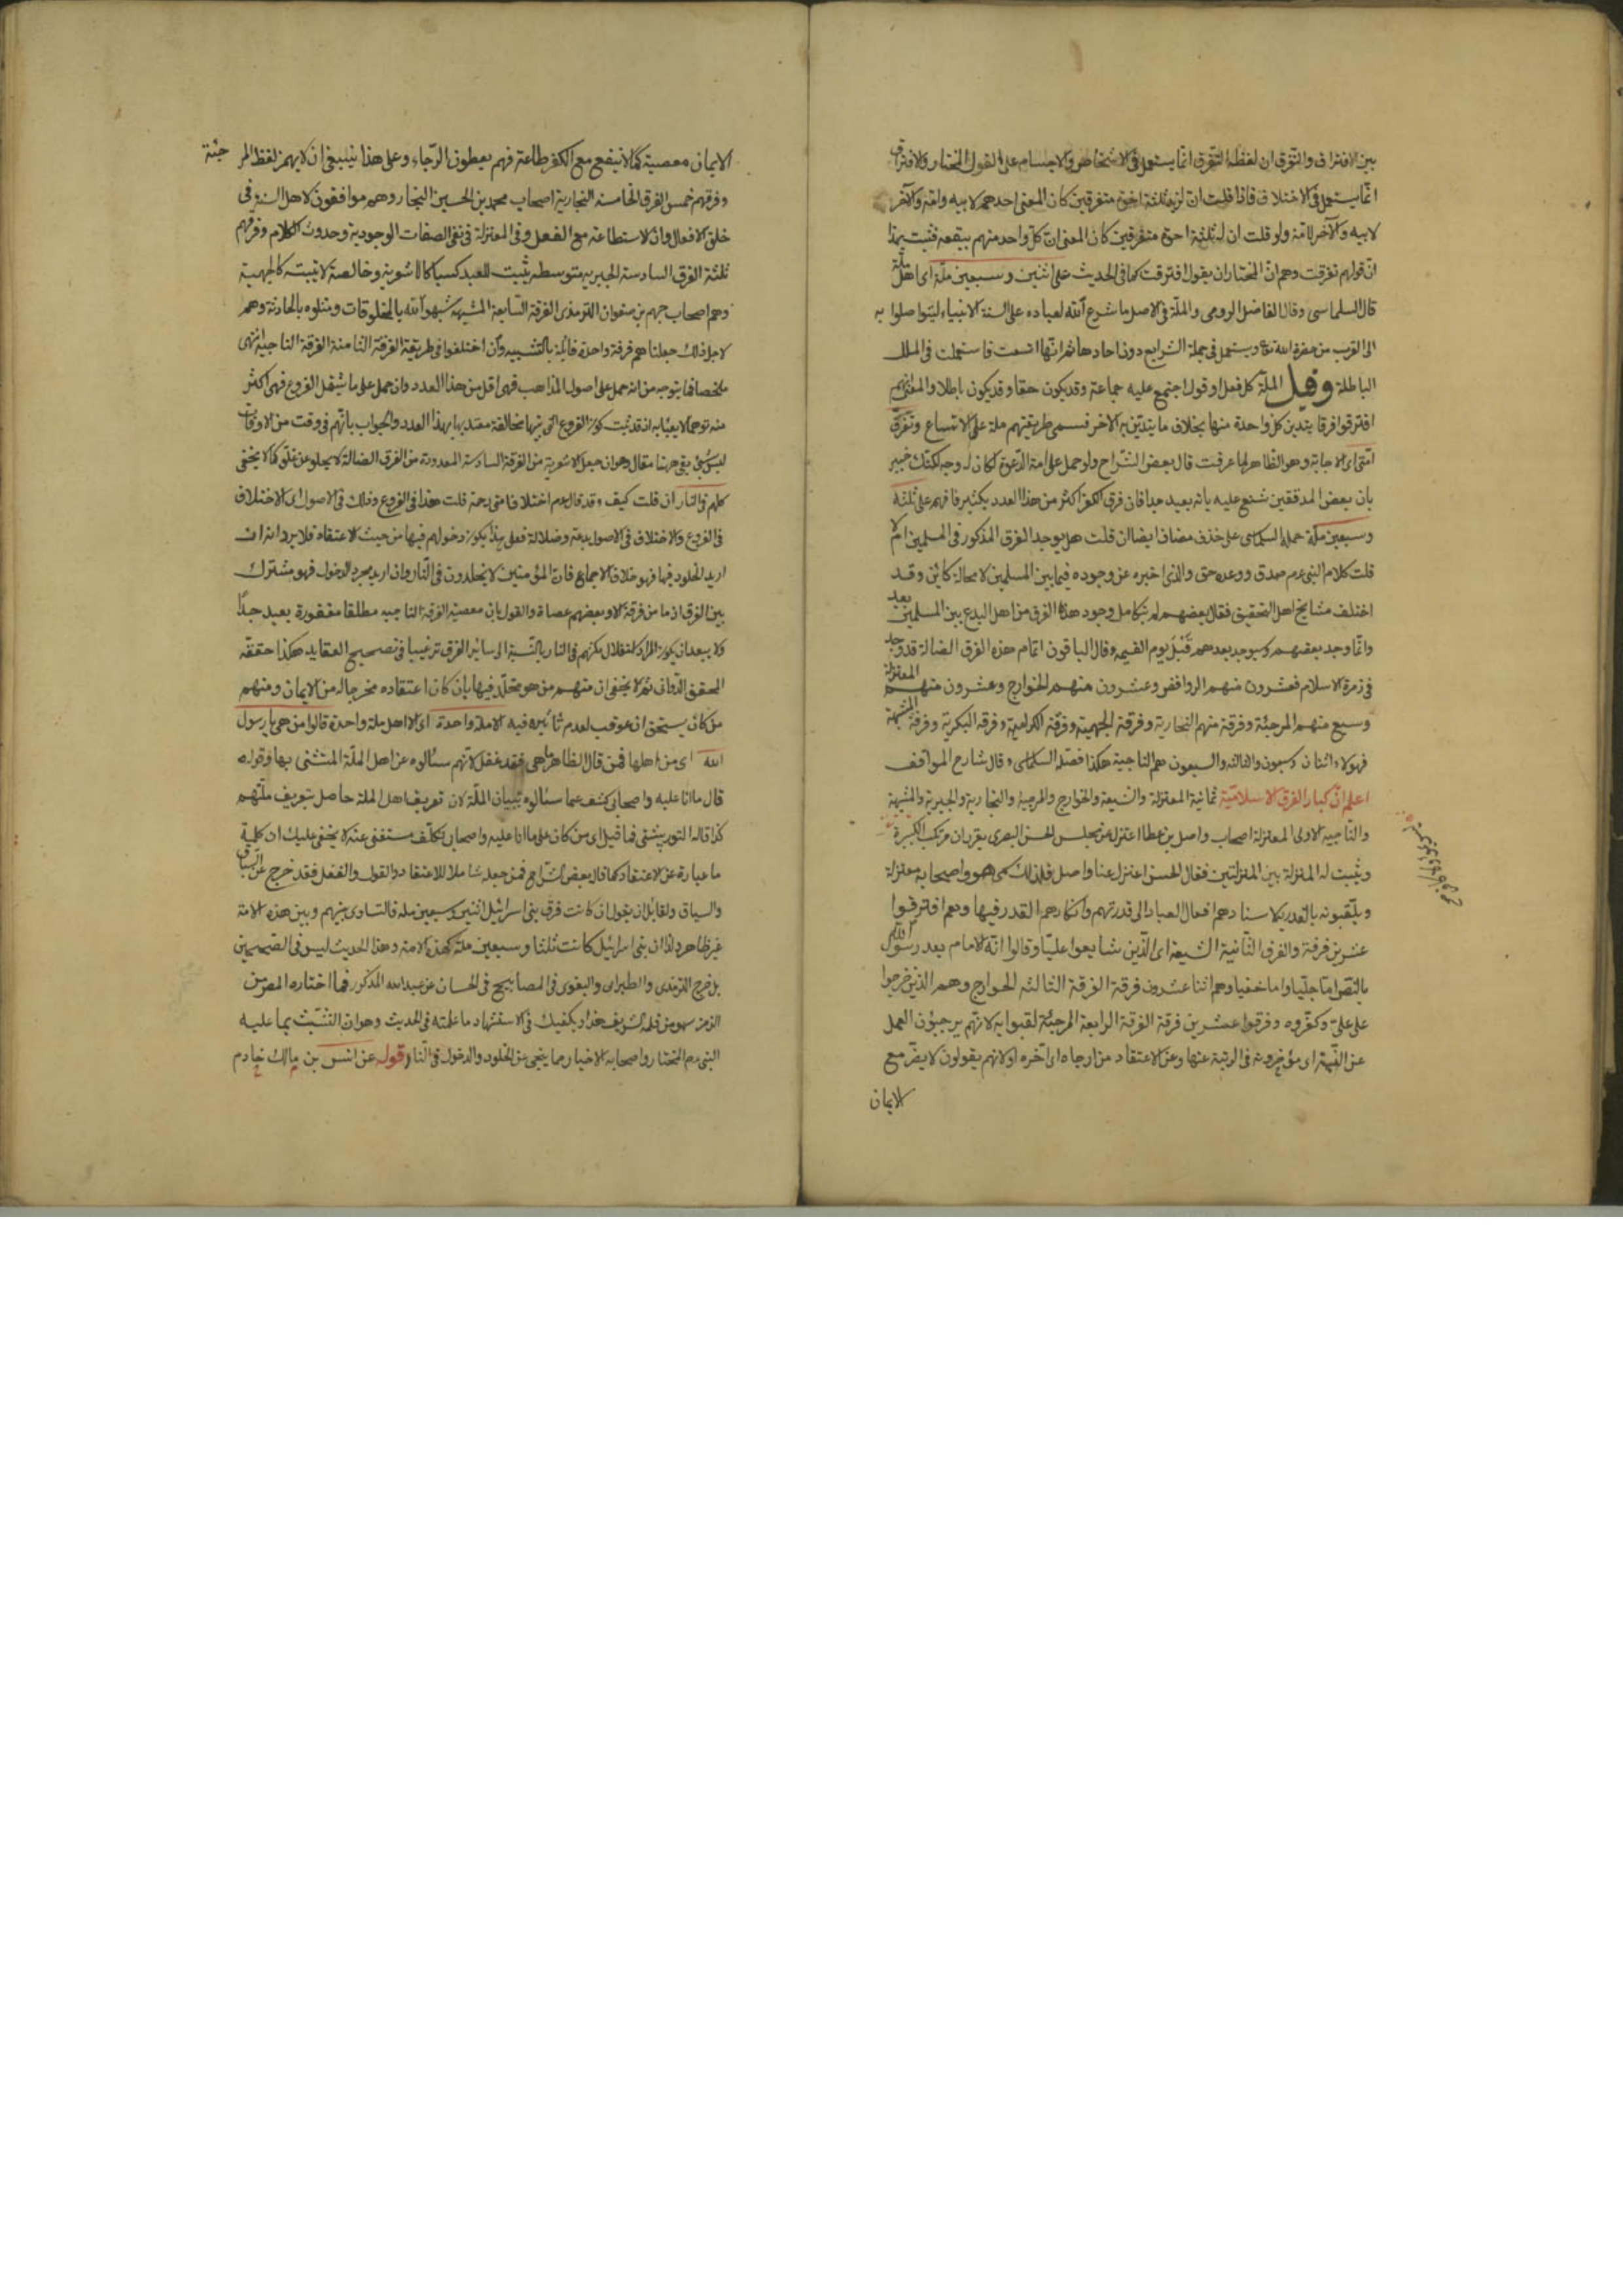 بين الافتراق والتفرق ان لفظة التفرق انما يستعمل فى الاشخاص والاجسام على القول المختار والافتراق
انما يستعمل فى الاختلاف فاذا قلت ان لزيد ثلثة اخوة متفرقين كان المعنى احدهم لابيه وامه والآخر
لابيه والآخر لامه ولو قلت ان له ثلثة اخوة مفترقين كان المعنى ان كل واحد منهم ببقعة فثبت بهذا
ان قولهم تفرقت وهم ان المختار ان يقول افترقت كما فى الحديث على اثنين وسبعين ملة اى اهل ملة
قال السلماسى وقال الفاضل الرومى والملة فى الاصل ما شرع الله لعباده على السنة الانبياء ليتواصلوا به
الى القرب من حضرة الله تعا ويستعمل فى جملة الشرايع دون احادها ثم انها اتسعت فاستعملت فى الملل
الباطلة وقيل الملة كل فعل او قول اجتمع عليه جماعة وقد يكون حقا وقد يكون باطلا والمعنى انهم
افترقوا فرقا يتدين كل واحدة منها بخلاف ما يتدين به الاخر فسمى طريقتهم ملة على الاتساع وتفترق
امتى اى الاجابة وهو الظاهر لما عرفت قال بعض الشراح ولو حمل على امة الدعوة لكان له وجه لكنك خبير
بان بعض المدققين شنع عليه بانه بعيد جدا فان فرق الكفر اكثر من هذا العدد بكثير فافهم على ثلثة
وسبعين ملة حمله السلماسى على حذف مضاف ايضا ان قلت هل يوجد الفرق المذكور فى المسلمين ام لا
قلت كلام النبى عم صدق ووعده حق والذى اخبره عن وجوده فيما بين المسلمين لا محالة كائن وقد
اختلف مشايخ اهل التحقيق فقال بعضهم لم يتكامل وجود هذه الفرق من اهل البدع بين المسلمين بعد
وانما وجد بعضهم وسيوجد بعدهم قبل يوم القيمه وقال الباقون اتمام هذه الفرق الضالة قد وجد
فى زمرة الاسلام فعشرون منهم الروافض وعشرون منهم الخوارج وعشرون منهم المعتزلة
وسبع منهم المرجئة وفرقة منهم النجارية وفرقة الجهمية وفرقة الكرامية وفرقه البكرية وفرقة المشبهة
فهولاء اثنان وسبعون والثالثه والسبعون هم الناجية هكذا فصله السلماسى وقال شارح المواقف
اعلم ان كبار الفرق الاسلامية ثمانية المعتزلة والشيعة والخوارج والمرجية والنجارية والجبرية والمشبهة
والناجيه الاولى المعتزلة اصحاب واصل بن عطا اعتزل عن مجلس الحسن البصرى يقرر ان مرتكب الكبيرة
ويثبت له المنزلة بين المنزلتين فقال الحسن اعتزل عنا واصل فلذلك سمى هو واصحابه معتزلة
ويلقبونه بالقدرية لاسنادهم افعال العباد الى قدرتهم وانكارهم القدر فيها وهم افترقوا
عشرين فرقة والفرق الثانية الشيعة اى الذين شايعوا عليا وقالوا انه الامام بعد رسول الله
بالنص اما جليا واما خفيا وهم اثنا عشرون فرقة الفرقة الثالثه الخوارج وهم الذين خرجوا
على على وكفروه وفرقوا عشرين فرقة الفرقة الرابعة المرجئة لقبوا به لانهم يرجئون العمل
عن النية اى يؤخرونه فى الرتبة عنها وعن الاعتقاد من ارجاه اى اخره او لانهم يقولون لا يضر مع
الايمان
الايمان معصية كما لا ينفع مع الكفر طاعة فهم يعطون الرجاء وعلى هذا ينبغى ان لا يهمز لفظ المرجئة
وفرقهم خمس الفرق الخامسه النجارية اصحاب محمد بن الحسين النجار وهم موافقون لاهل السنة فى
خلق الافعال وان الاستطاعة مع الفعل وفى المعتزلة فى نفى الصفات الوجودية وحدوث الكلام وفرقهم
ثلثة الفرق السادسة الجبريه متوسطه يثبت للعبد كسبا كالاشعرية وخالصة لا تثبته كالجهمية
وهم اصحاب جهم بن صفوان الترمذى الفرقة السابعة المشبهه شبهوا الله بالمخلوقات ومثلوه بالحادثة وهم
لاجل ذلك جعلنا هم فرقة واحدة قائلة بالتشبيه وان اختلفوا فى طريقة الفرقة الثامنة الفرقة الناجية انتهى
ملخصا فما يتوجه من انه حمل على اصول المذاهب فهى اقل من هذا العدد وان حمل على ما يشمل الفروع فهى اكثر
منه توهم لا يعبأ به اذ قد ثبت كون الفروع التى بينها مخالفة معتد بها بهذا العدد والجواب بانهم فى وقت من الاوقات
ليس بشئ بقى ههنا مقال وهو ان جعل الاشعرية من الفرقة السادسة المعدودة من الفرق الضالة لا يخلو عن غلو كما لا يخفى
كلهم فى النار ان قلت كيف وقد قال عم اختلاف امتى رحمة قلت هذا فى الفروع وذلك فى الاصول اى الاختلاف
فى الفروع والاختلاف فى الاصول بدعة وضلالة فعلى هذا يكون دخولهم فيها من حيث الاعتقاد فلا يرد انه ان
اريد الخلود فيها فهو خلاف الاجماع فان المؤمنين لا يخلدون فى النار وان اريد مجرد الدخول فهو مشترك
بين الفرق اذ ما من فرقة الا وبعضهم عصاة والقول بان معصية الفرقة الناجيه مطلقا مغفورة بعيد جدا
ولا يبعد ان يكون المراد استقلال مكثهم فى النار بالنسبة الى سائر الفرق ترغيبا فى تصحيح العقايد هكذا حققه
المحقق الدوانى ثم لا يخفى ان منهم من هو مخلد فيها بان كان اعتقاده مخرجا له من الايمان ومنهم
من كان يستحق ان عوقب لعدم تأثيره فيه الا ملة واحدة اى الا اهل ملة واحدة قالوا من هى يا رسول
الله اى من اهلها فمن قال الظاهر ما هى فقد غفل لانهم سئالوه عن اهل الملة المتثنى بها وقوله
قال ما انا عليه واصحابى كشف عما سئالوه ببيان الملة لان تعريف اهل الملة حاصل بتعريف ملتهم
كذا قاله التوربشتى فما قيل اى من كان على ما انا عليه واصحابى تكلف مستغنى عنه لا يخفى عليك ان كلمة
ما عبارة عن الاعتقاد كما قال بعض الشراح فمن جعله شاملا للاعتقاد والقول والفعل فقد خرج عن السباق
والسياق ولقائل ان يقول ان كانت فرق بنى اسرائيل اثنين وسبعين ملة فالتساوى بينهم وبين هذه الامة
غير ظاهر ان بنى اسرائيل كانت ثلثا وسبعين ملة كهذه الامة وهذا الحديث ليس فى الصحيحين
بل خرج الترمذى والطبرانى والبغوى فى المصابيح فى الحسان عن عبد الله المذكور فما اختاره المص من
الرمز سهو من قلمه الشريف هذا ويكفيك فى الاستشهاد ما علمته فى الحديث وهو ان التشبث بما عليه
النبى عم المختار واصحابه الاخيار مما ينجى عن الخلود والدخول فى النار قوله عن انس بن مالك خادم